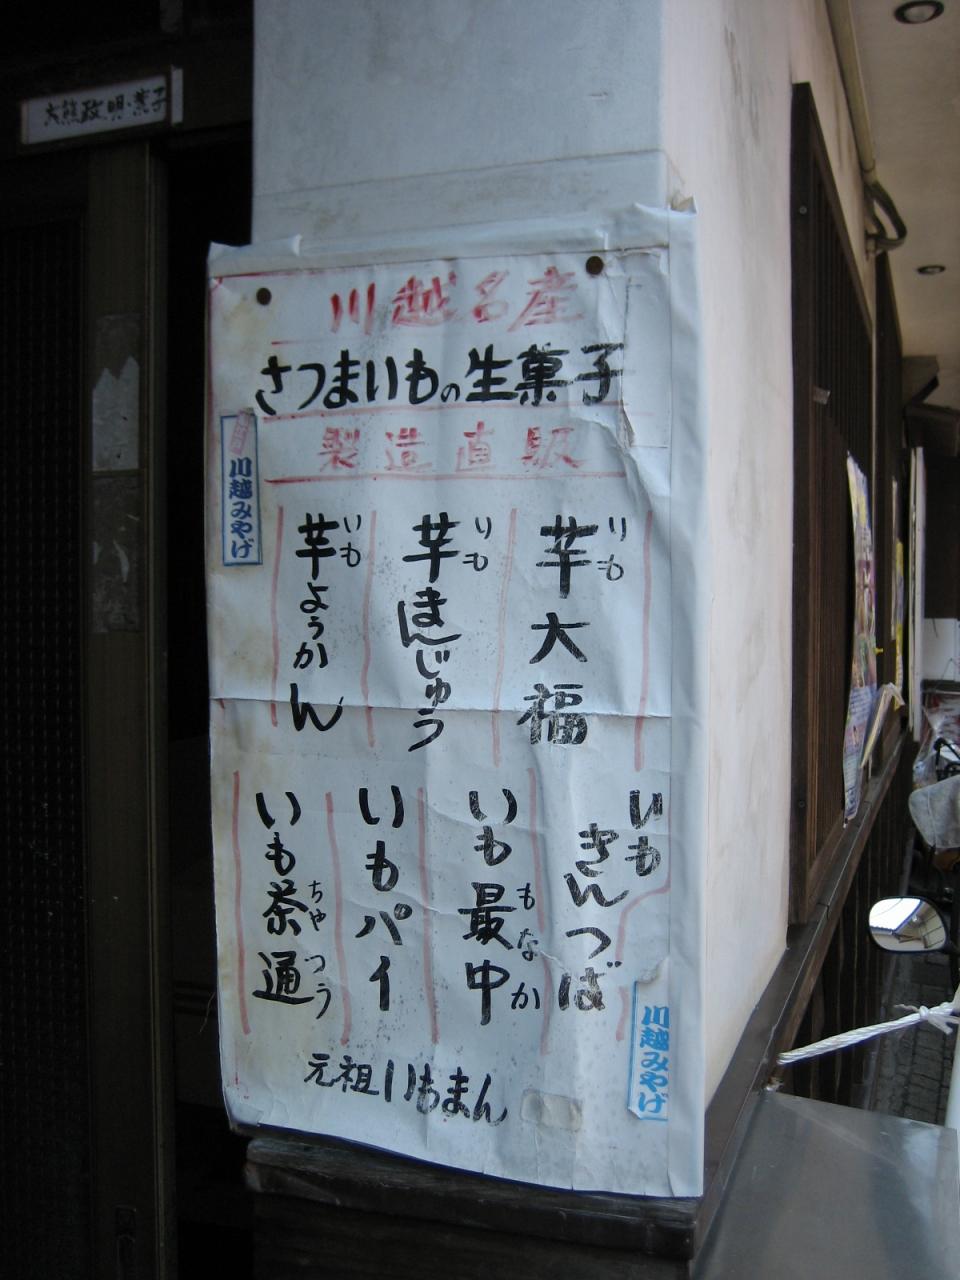 川越名産
さつまいもの生菓子
製造直販
芋大福
いも
芋まんじゅう
いも
芋ようかん
いも
いもきんつば
いも最中
もなか
いもパイ
いも茶通
ちゃつう
元祖いもまん
川越みやげ
川越みやげ